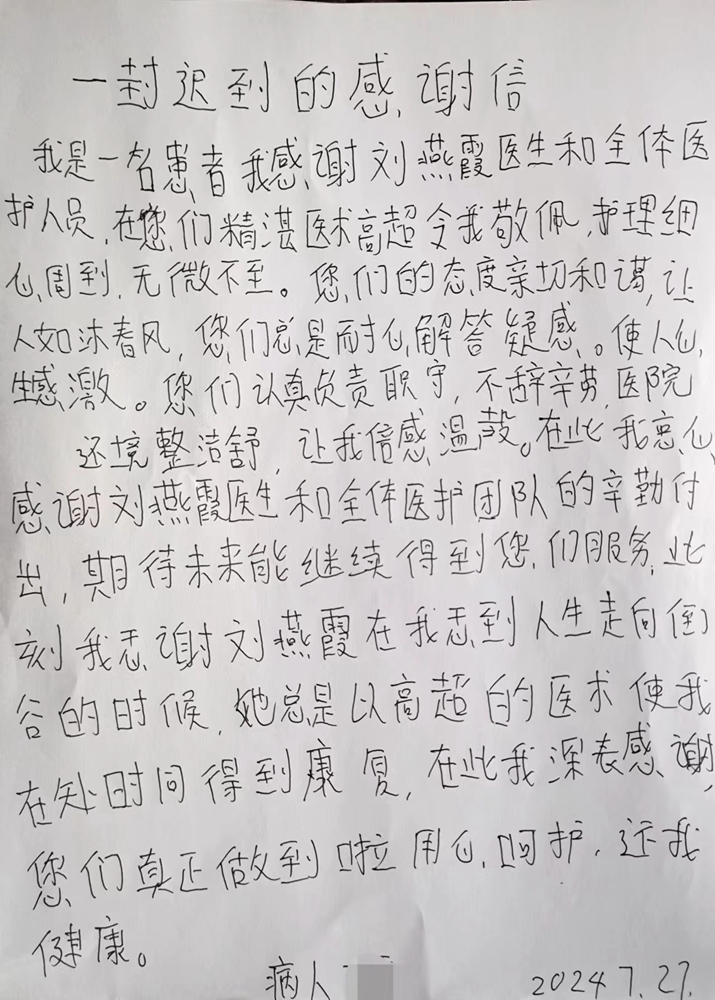 一封迟到的感谢信
我是一名患者我感谢刘燕霞医生和全体医
护人员，在您们精湛医术高超令我敬佩，护理细
心周到，无微不至。您们的态度亲切和谒，让
人如沐春风，您们总是耐心解答疑惑。使人心
生感激。您们认真负责职守，不辞辛劳，医院
还境整洁舒，让我倍感温馨。在此我衷心
感谢刘燕霞医生和全体医护团队的辛勤付
出，期待未来能继续得到您们服务，此
刻我感谢刘燕霞在我感到人生走向低
谷的时候，她总是以高超的医术使我
在短时间得到康复，在此我深表感谢，
您们真正做到啦用心呵护，还我
健康。
病人
2024 7. 27.